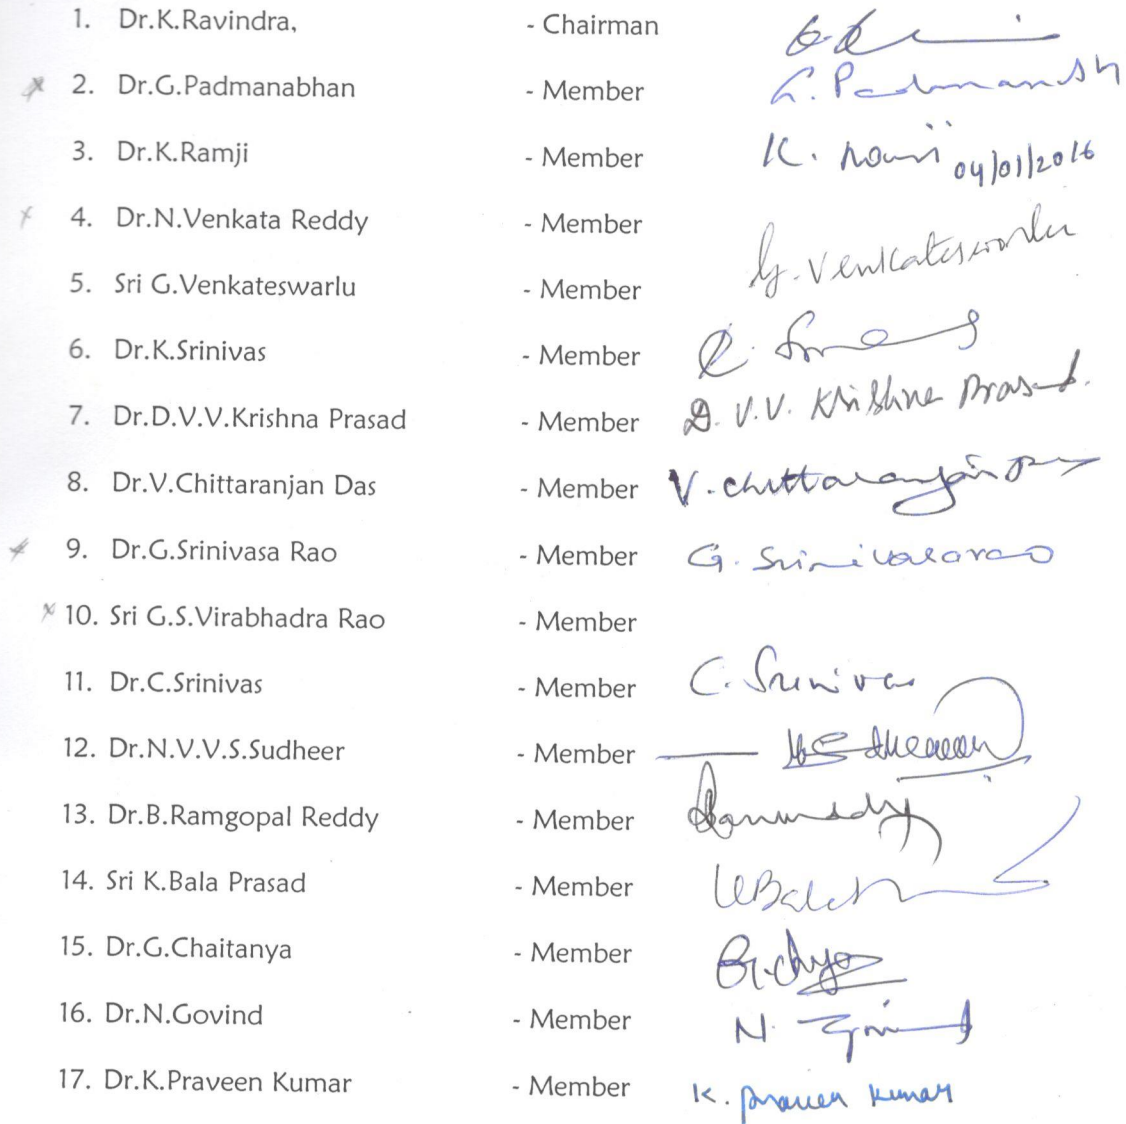 1. Dr.K.Ravindra, - Chairman
2. Dr.G.Padmanabhan - Member G. Padmanabh
3. Dr.K.Ramji - Member K. Ramji 04/01/2016
4. Dr.N.Venkata Reddy - Member
5. Sri G.Venkateswarlu - Member G. Venkateswarlu
6. Dr.K.Srinivas - Member
7. Dr.D.V.V.Krishna Prasad - Member D. V.V. Krishna Prasad.
8. Dr.V.Chittaranjan Das - Member V. Chittaranjan Das
9. Dr.G.Srinivasa Rao - Member G. Srinivasarao
10. Sri G.S.Virabhadra Rao - Member
11. Dr.C.Srinivas - Member C. Srinivas
12. Dr.N.V.V.S.Sudheer - Member
13. Dr.B.Ramgopal Reddy - Member
14. Sri K.Bala Prasad - Member
15. Dr.G.Chaitanya - Member
16. Dr.N.Govind - Member N. Govind
17. Dr.K.Praveen Kumar - Member K. Praveen Kumar